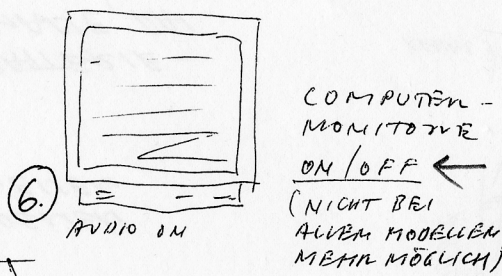 6.
AUDIO ON
COMPUTER-
MONITORE
ON/OFF ←
(NICHT BEI
ALLEN MODELLEN
MEHR MÖGLICH)